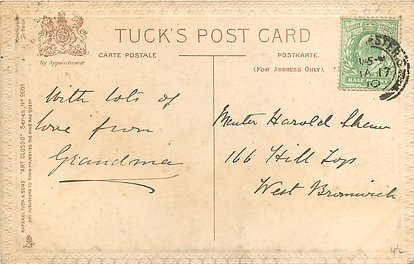 TUCK'S POST CARD
CARTE POSTALE
POSTKARTE.
(FOR ADDRESS ONLY.)
By Appointment
With lots of
love from
Grandma
Master Harold Shaw
166 Hill Top
West Bromwich
HALF PENNY
JA 17
10
RAPHAEL TUCK & SONS' "ART GLOSSO" Series, No 9091
ART PUBLISHERS TO THEIR MAJESTIES THE KING AND QUEEN